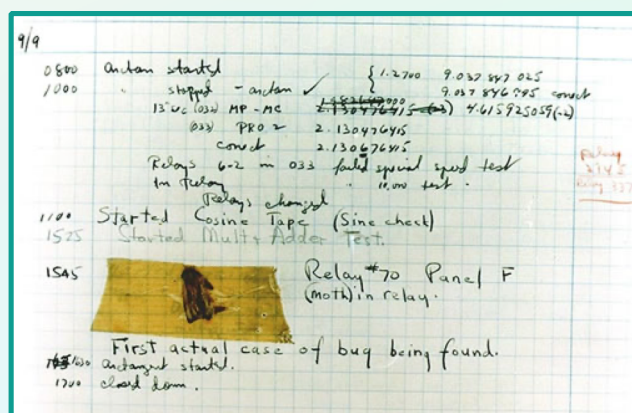 9/9
0800 Antan started
1000 " stopped - antan ✓ { 1.2700 9.037 847 025
9.037 846 995 conect
13"uc (032) MP - MC 2.130476415 (-3) 4.615925059(-2)
(033) PRO 2 2.130476415
conect 2.130676415
Relays 6-2 in 033 failed special speed test
In Relay " 10,000 test .
Relays changed
Relay
3370
1100 Started Cosine Tape (Sine check)
1525 Started Mult + Adder Test.
1545 Relay #70 Panel F
(moth) in relay.
First actual case of bug being found.
1630 antangent started.
1700 closed down.